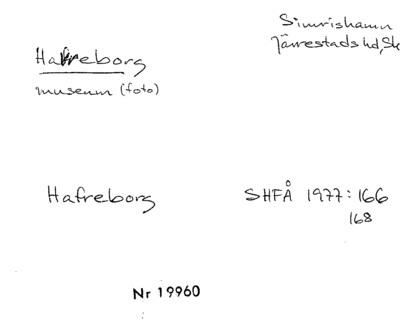 Simrishamn
Järrestads hd, Sk
Hafreborg
museum (foto)
Hafreborg SHFÅ 1977:166
168
Nr 19960